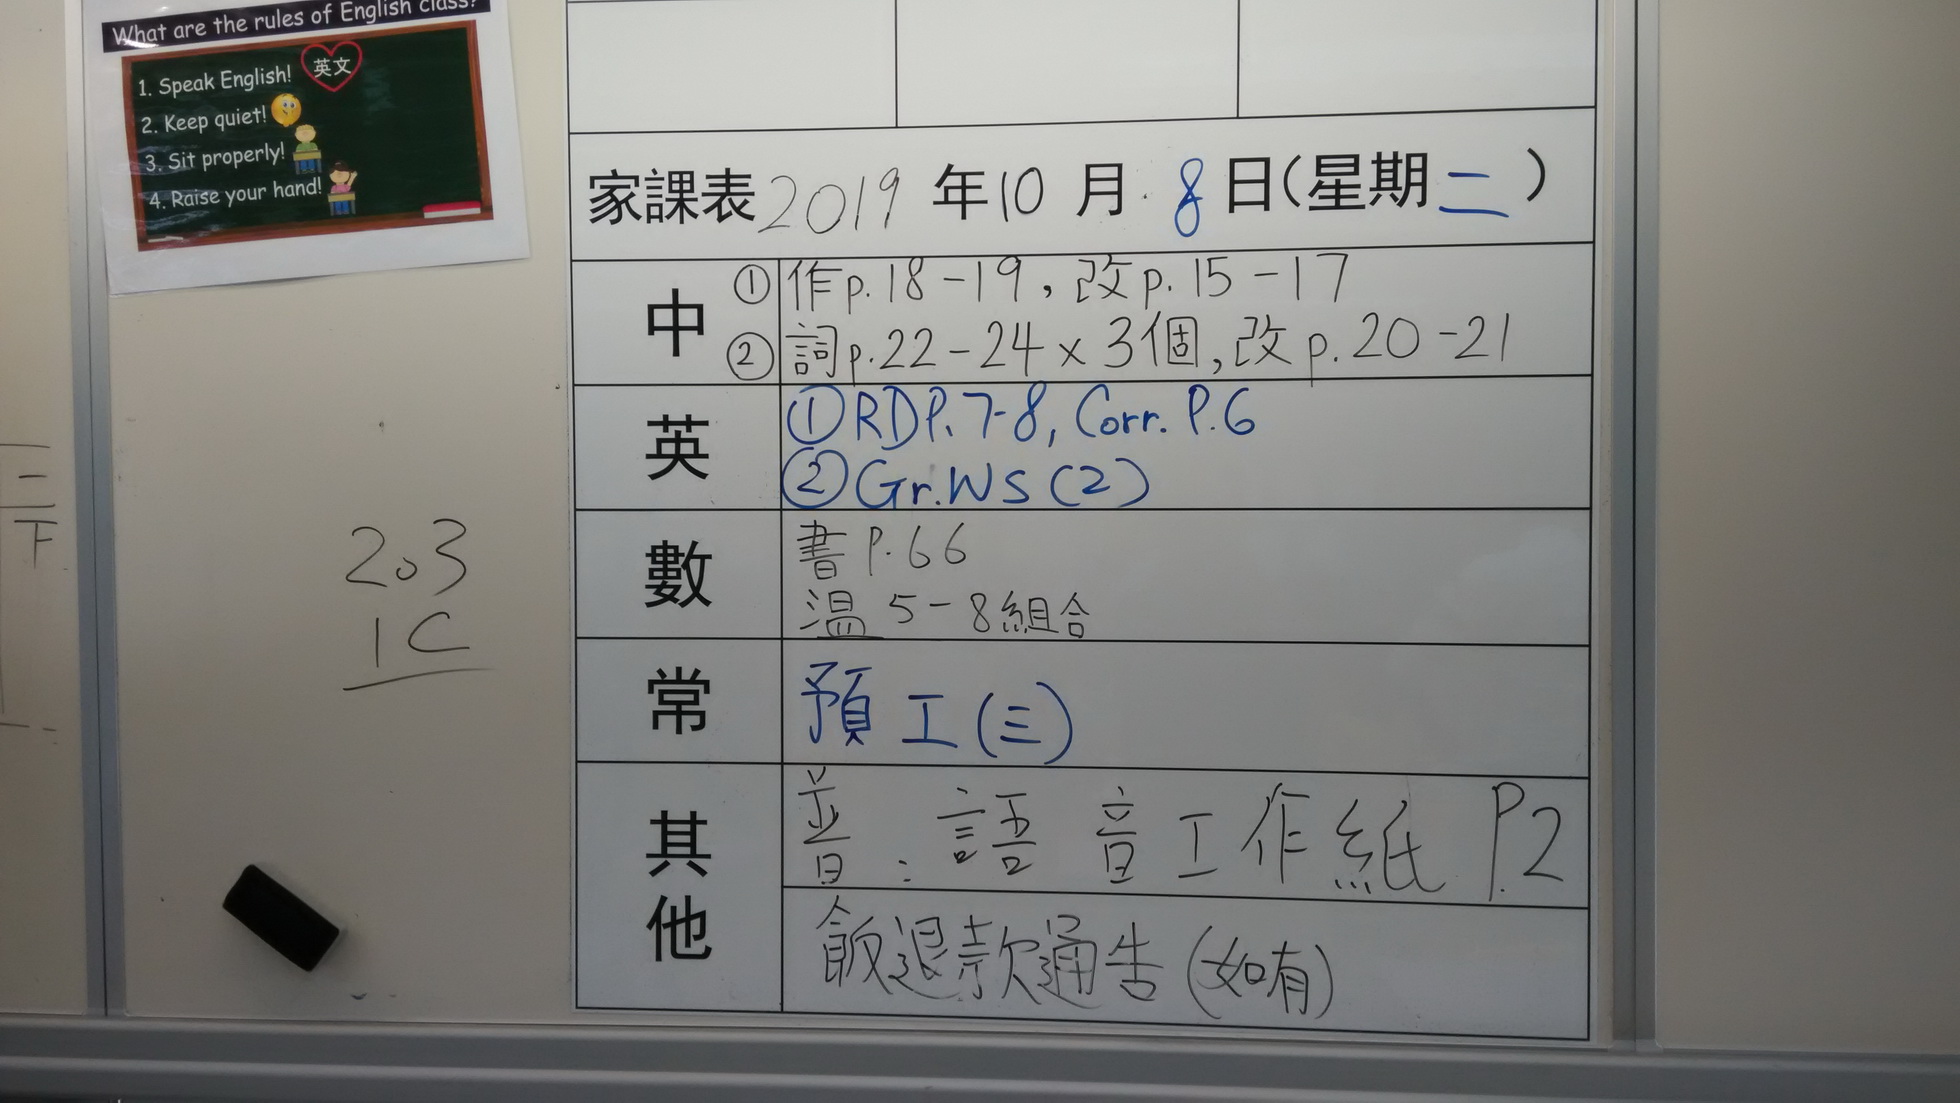 What are the rules of English class?
1. Speak English! 英文
2. Keep quiet!
3. Sit properly!
4. Raise your hand!
家課表 2019 年 10 月 8 日(星期二)
中
① 作p.18-19，改p.15-17
② 詞p.22-24×3個,改p.20-21
英
① RD P.7-8, Corr. P.6
② Gr.WS (2)
數
書 P.66
溫 5-8組合
常
預工(三)
其他
普：語音工作紙 P.2
飯退款通告(如有)
2.3
1C
一
下